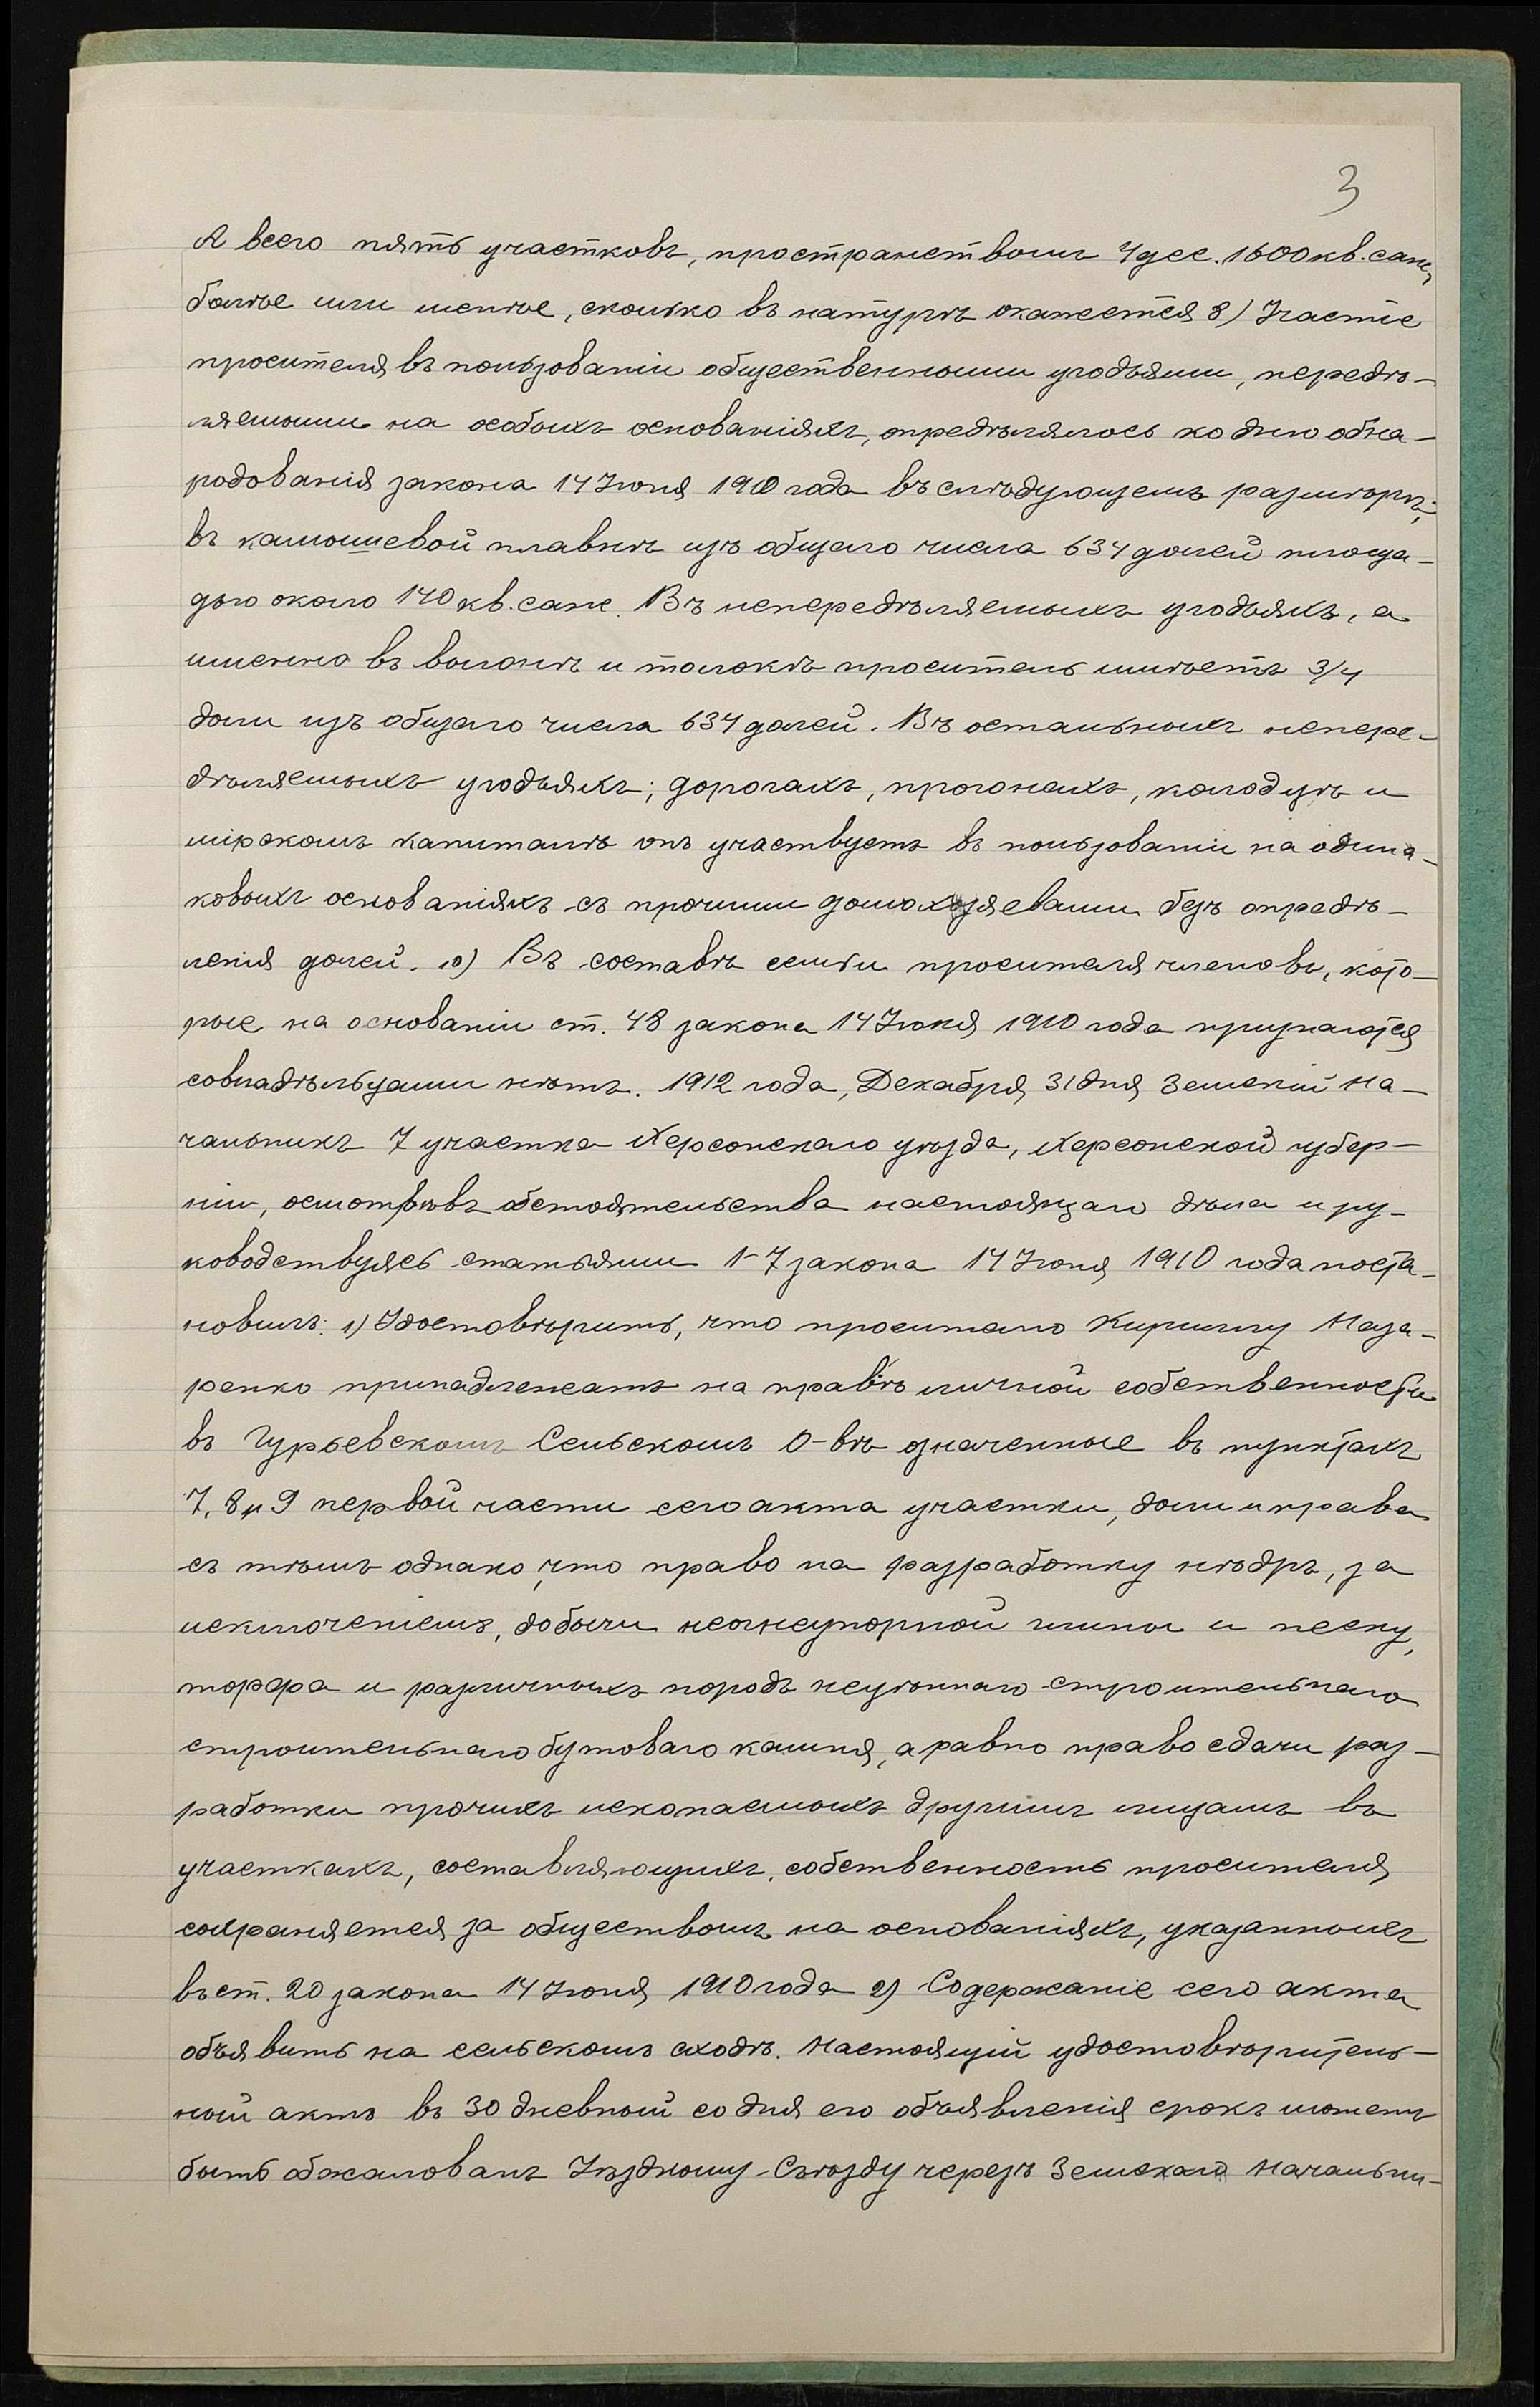 3
А всего пять участковъ, пространствомъ 4 дес. 1600 кв. саж,
болѣе или менѣе, сколько въ натурѣ окажется 8) Участіе
просителя въ пользованіи общественными угодьями, передѣ-
ляемыми на особыхъ основаніяхъ, опредѣлялось ко дню обна-
родованія закона 14 Іюня 1910 года въ слѣдующемъ размѣрѣ;
въ камышевой плавнѣ изъ общаго числа 634 долей площа-
дью около 140 кв. саж. Въ непередѣляемыхъ угодьяхъ, а
именно въ выгонѣ и толокѣ проситель имѣетъ 3/4
доли изъ общаго числа 634 долей. Въ остальныхъ непере-
дѣляемыхъ угодьяхъ; дорогахъ, прогонахъ, колодцѣ и
мірскомъ капиталѣ онъ участвуетъ въ пользованіи на одина-
ковыхъ основаніяхъ съ прочими домохозяевами безъ опредѣ-
ленія долей. 10) Въ составѣ семьи просителя членовъ, кото-
рые на основаніи ст. 48 закона 14 Іюня 1910 года признаются
совладѣльцами нѣтъ. 1912 года, Декабря 31 дня Земскій На-
чальникъ 7 участка Херсонскаго уѣзда, Херсонской губер-
ніи, осмотрѣвъ обстоятельства настоящаго дѣла и ру-
ководствуясь статьями 1-7 закона 14 Іюня 1910 года поста-
новилъ: 1) Удостовѣрить, что просителю Кириллу Наза-
ренко принадлежатъ на правѣ личной собственности
въ Гурьевскомъ Сельскомъ О-вѣ означенные въ пунктахъ
7, 8 и 9 первой части сего акта участки, доли и права
съ тѣмъ однако, что право на разработку нѣдръ, за
исключеніемъ, добычи неогнеупорной глины и песку,
торфа и различныхъ породъ неуѣннаго строительнаго
строительнаго бутоваго камня, а равно право сдачи раз-
работки прочихъ ископаемыхъ другимъ лицамъ въ
участкахъ, составляющихъ, собственность просителя
сохраняется за обществомъ на основаніяхъ, указанныхъ
въ ст. 20 закона 14 Іюня 1910 года 2) Содержаніе сего акта
объявить на сельскомъ сходѣ. Настоящій удостовѣритель-
ный актъ въ 30 дневный со дня его объявленія срокъ можетъ
быть обжалованъ Уѣздному Съѣзду черезъ Земскаго Начальни-